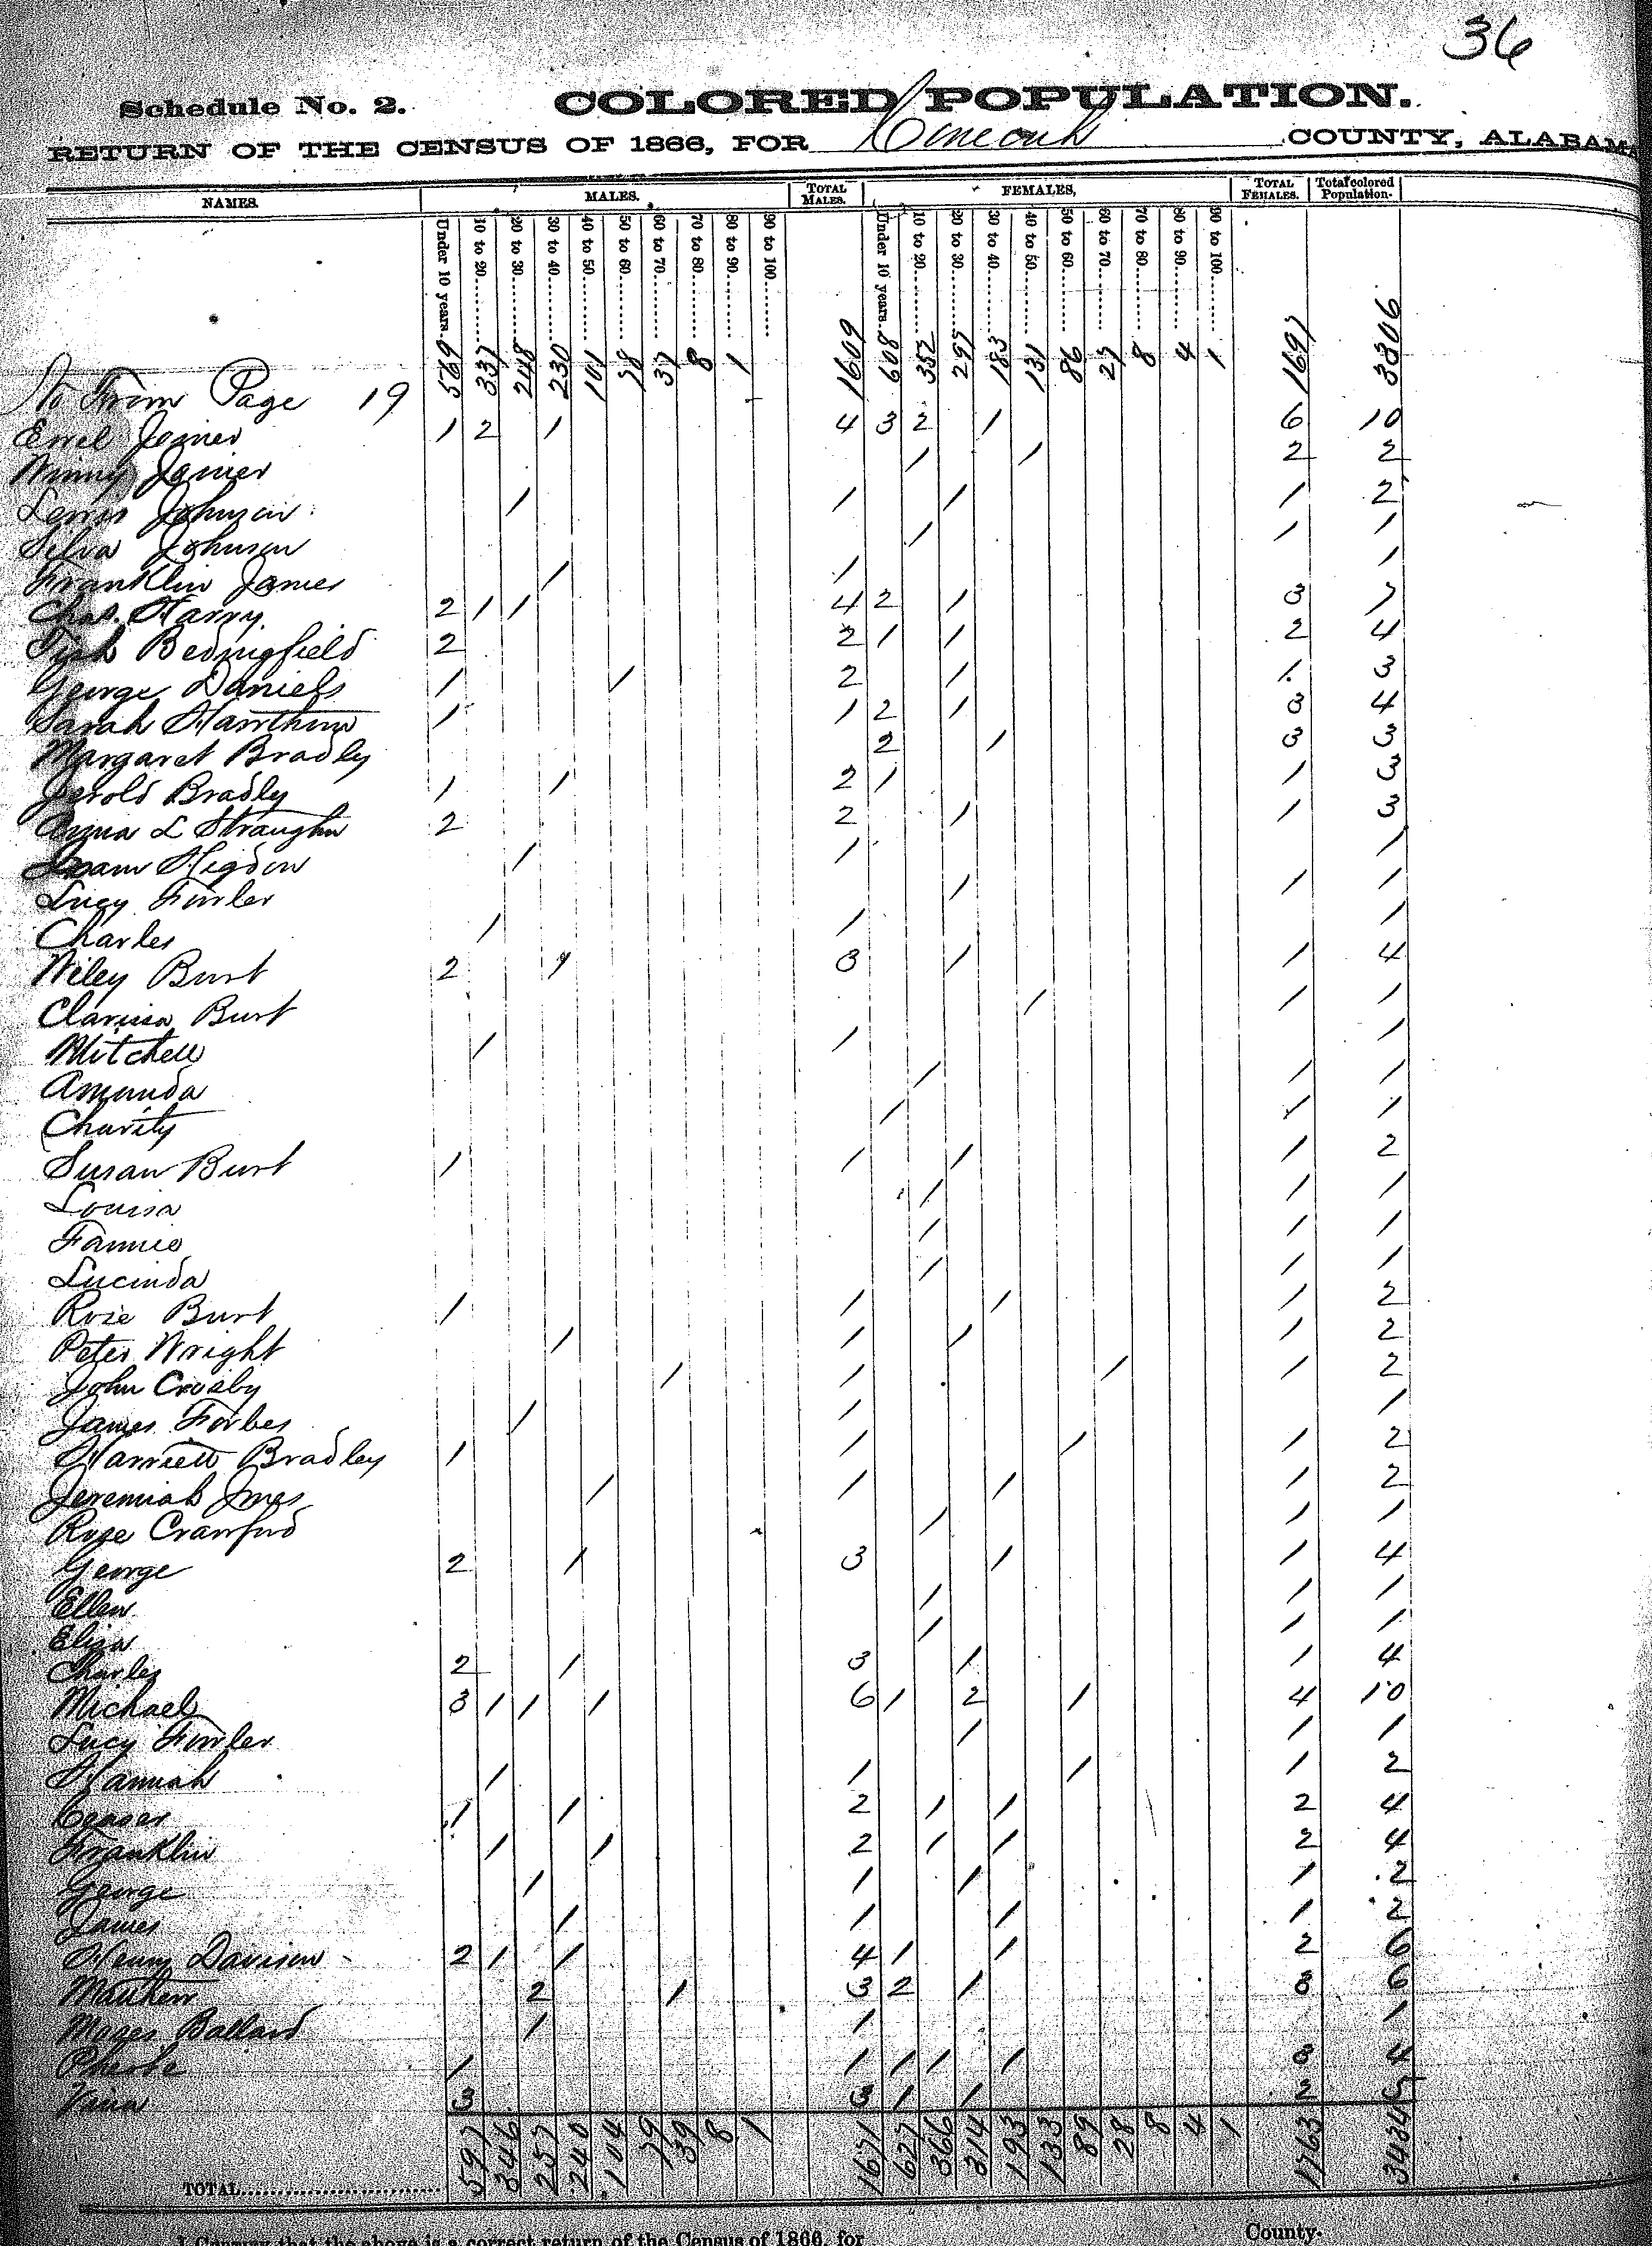 36
Schedule No. 2. COLORED POPULATION.
RETURN OF THE CENSUS OF 1866, FOR Conecuh COUNTY, ALABAMA
NAMES. MALES. TOTAL MALES. FEMALES, TOTAL FEMALES. Total colored Population.
Under 10 years. 10 to 20 20 to 30 30 to 40 40 to 50 50 to 60 60 to 70 70 to 80 80 to 90 90 to 100 Under 10 years. 10 to 20 20 to 30 30 to 40 40 to 50 50 to 60 60 to 70 70 to 80 80 to 90 90 to 100
No From Page 19 569 337 248 230 101 78 37 8 1 1609 608 352 297 183 131 86 27 8 4 1 1697 3306
Errel Joiner 1 2 1 4 3 2 1 6 10
Winny Joiner 1 1 2 2
Lewis Johnson 1 1 1 1 2
Silva Johnson 1 1 1
Franklin James 1 1 1
Chas. Harry 2 1 1 4 2 1 3 7
Bedingfield 2 2 1 1 2 4
George Daniels 1 1 2 1 1 3
Sarah Hawthorn 1 1 2 1 3 4
Margaret Bradly 2 1 3 3
Jerold Bradly 1 1 2 1 1 3
Anna L Straughn 2 2 1 1 3
Higdon 1 1 1
Lucy Fowler 1 1 1
Charles 1 1 1
Wiley Burt 2 1 3 1 1 4
Clarissa Burt 1 1 1
Mitchell 1 1 1
Amanda 1 1 1
Charity 1 1 1
Susan Burt 1 1 1 1 2
Louisa 1 1 1
Fannie 1 1 1
Lucinda 1 1 1
Rose Burt 1 1 1 1 2
Peter Wright 1 1 1 1 2
John Crosby 1 1 1 1 2
James Forbes 1 1 1
Harriett Bradley 1 1 1 1 2
Jeremiah Jones 1 1 1 1 2
Rose Crawford 1 1 1
George 2 1 3 1 1 4
Ellen 1 1 1
Eliza 1 1 1
Charles 2 1 3 1 1 4
Michael 3 1 1 1 6 1 2 1 4 10
Lucy Fowler 1 1 1
Hannah 1 1 1 1 2
Ceaser 1 1 2 1 1 2 4
Franklin 1 1 2 1 1 2 4
George 1 1 1 1 2
James 1 1 1 1 2
Henry Davison 2 1 1 4 1 1 2 6
Matthew 2 1 3 2 1 3 6
Moses Ballard 1 1 1
Pheobe 1 1 1 1 1 3 4
Vina 3 3 1 1 2 5
TOTAL 597 346 257 240 104 79 39 8 1 1671 627 366 314 193 133 89 28 8 4 1 1763 3434
I Certify that the above is a correct return of the Census of 1866, for County.